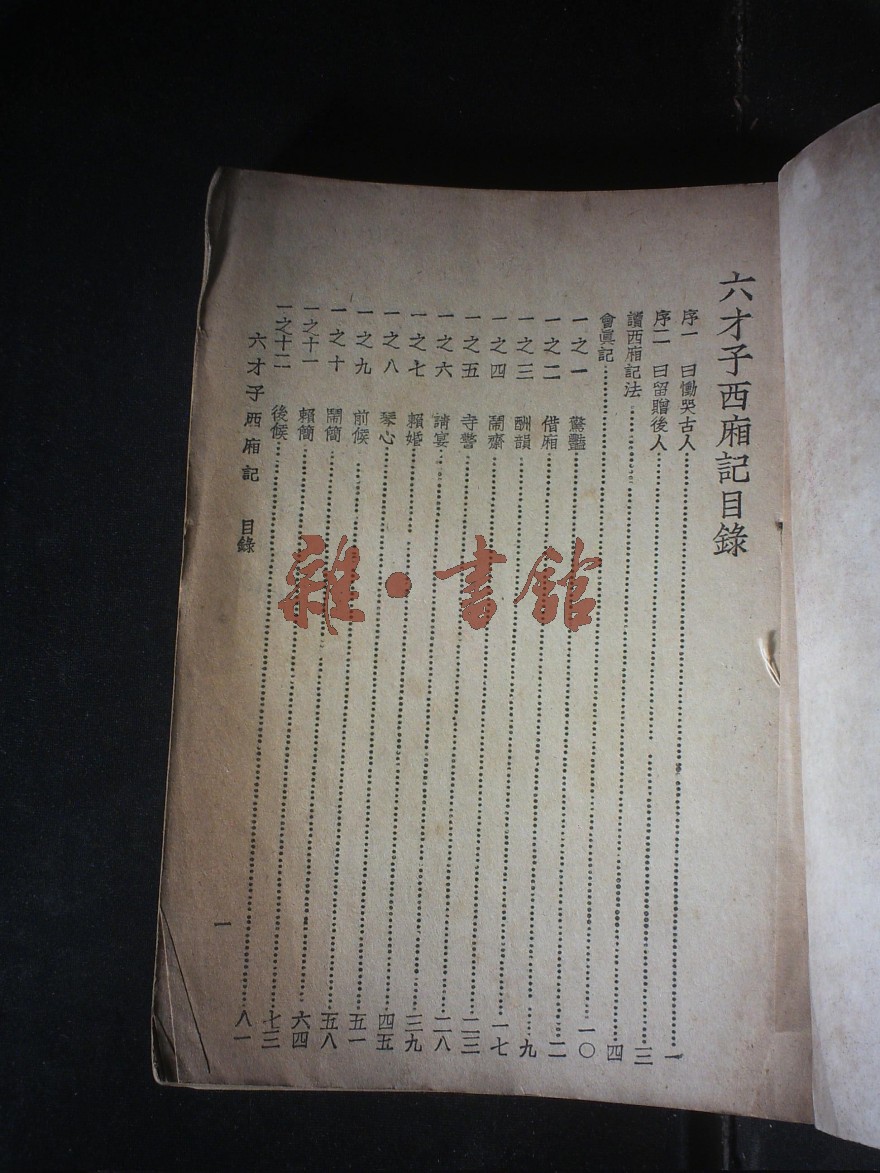 六才子西廂記目錄
序一 曰慟哭古人……一
序二 曰留贈後人……三
讀西廂記法……四
會眞記……一〇
一之一 驚豔……二
一之二 借廂……九
一之三 酬韻……一七
一之四 鬧齋……二三
一之五 寺警……二八
一之六 請宴……三九
一之七 賴婚……四五
一之八 琴心……五一
一之九 前候……五八
一之十 鬧簡……六四
一之十一 賴簡……七三
一之十二 後候……八一
六才子西廂記 目錄
一
雜·書館